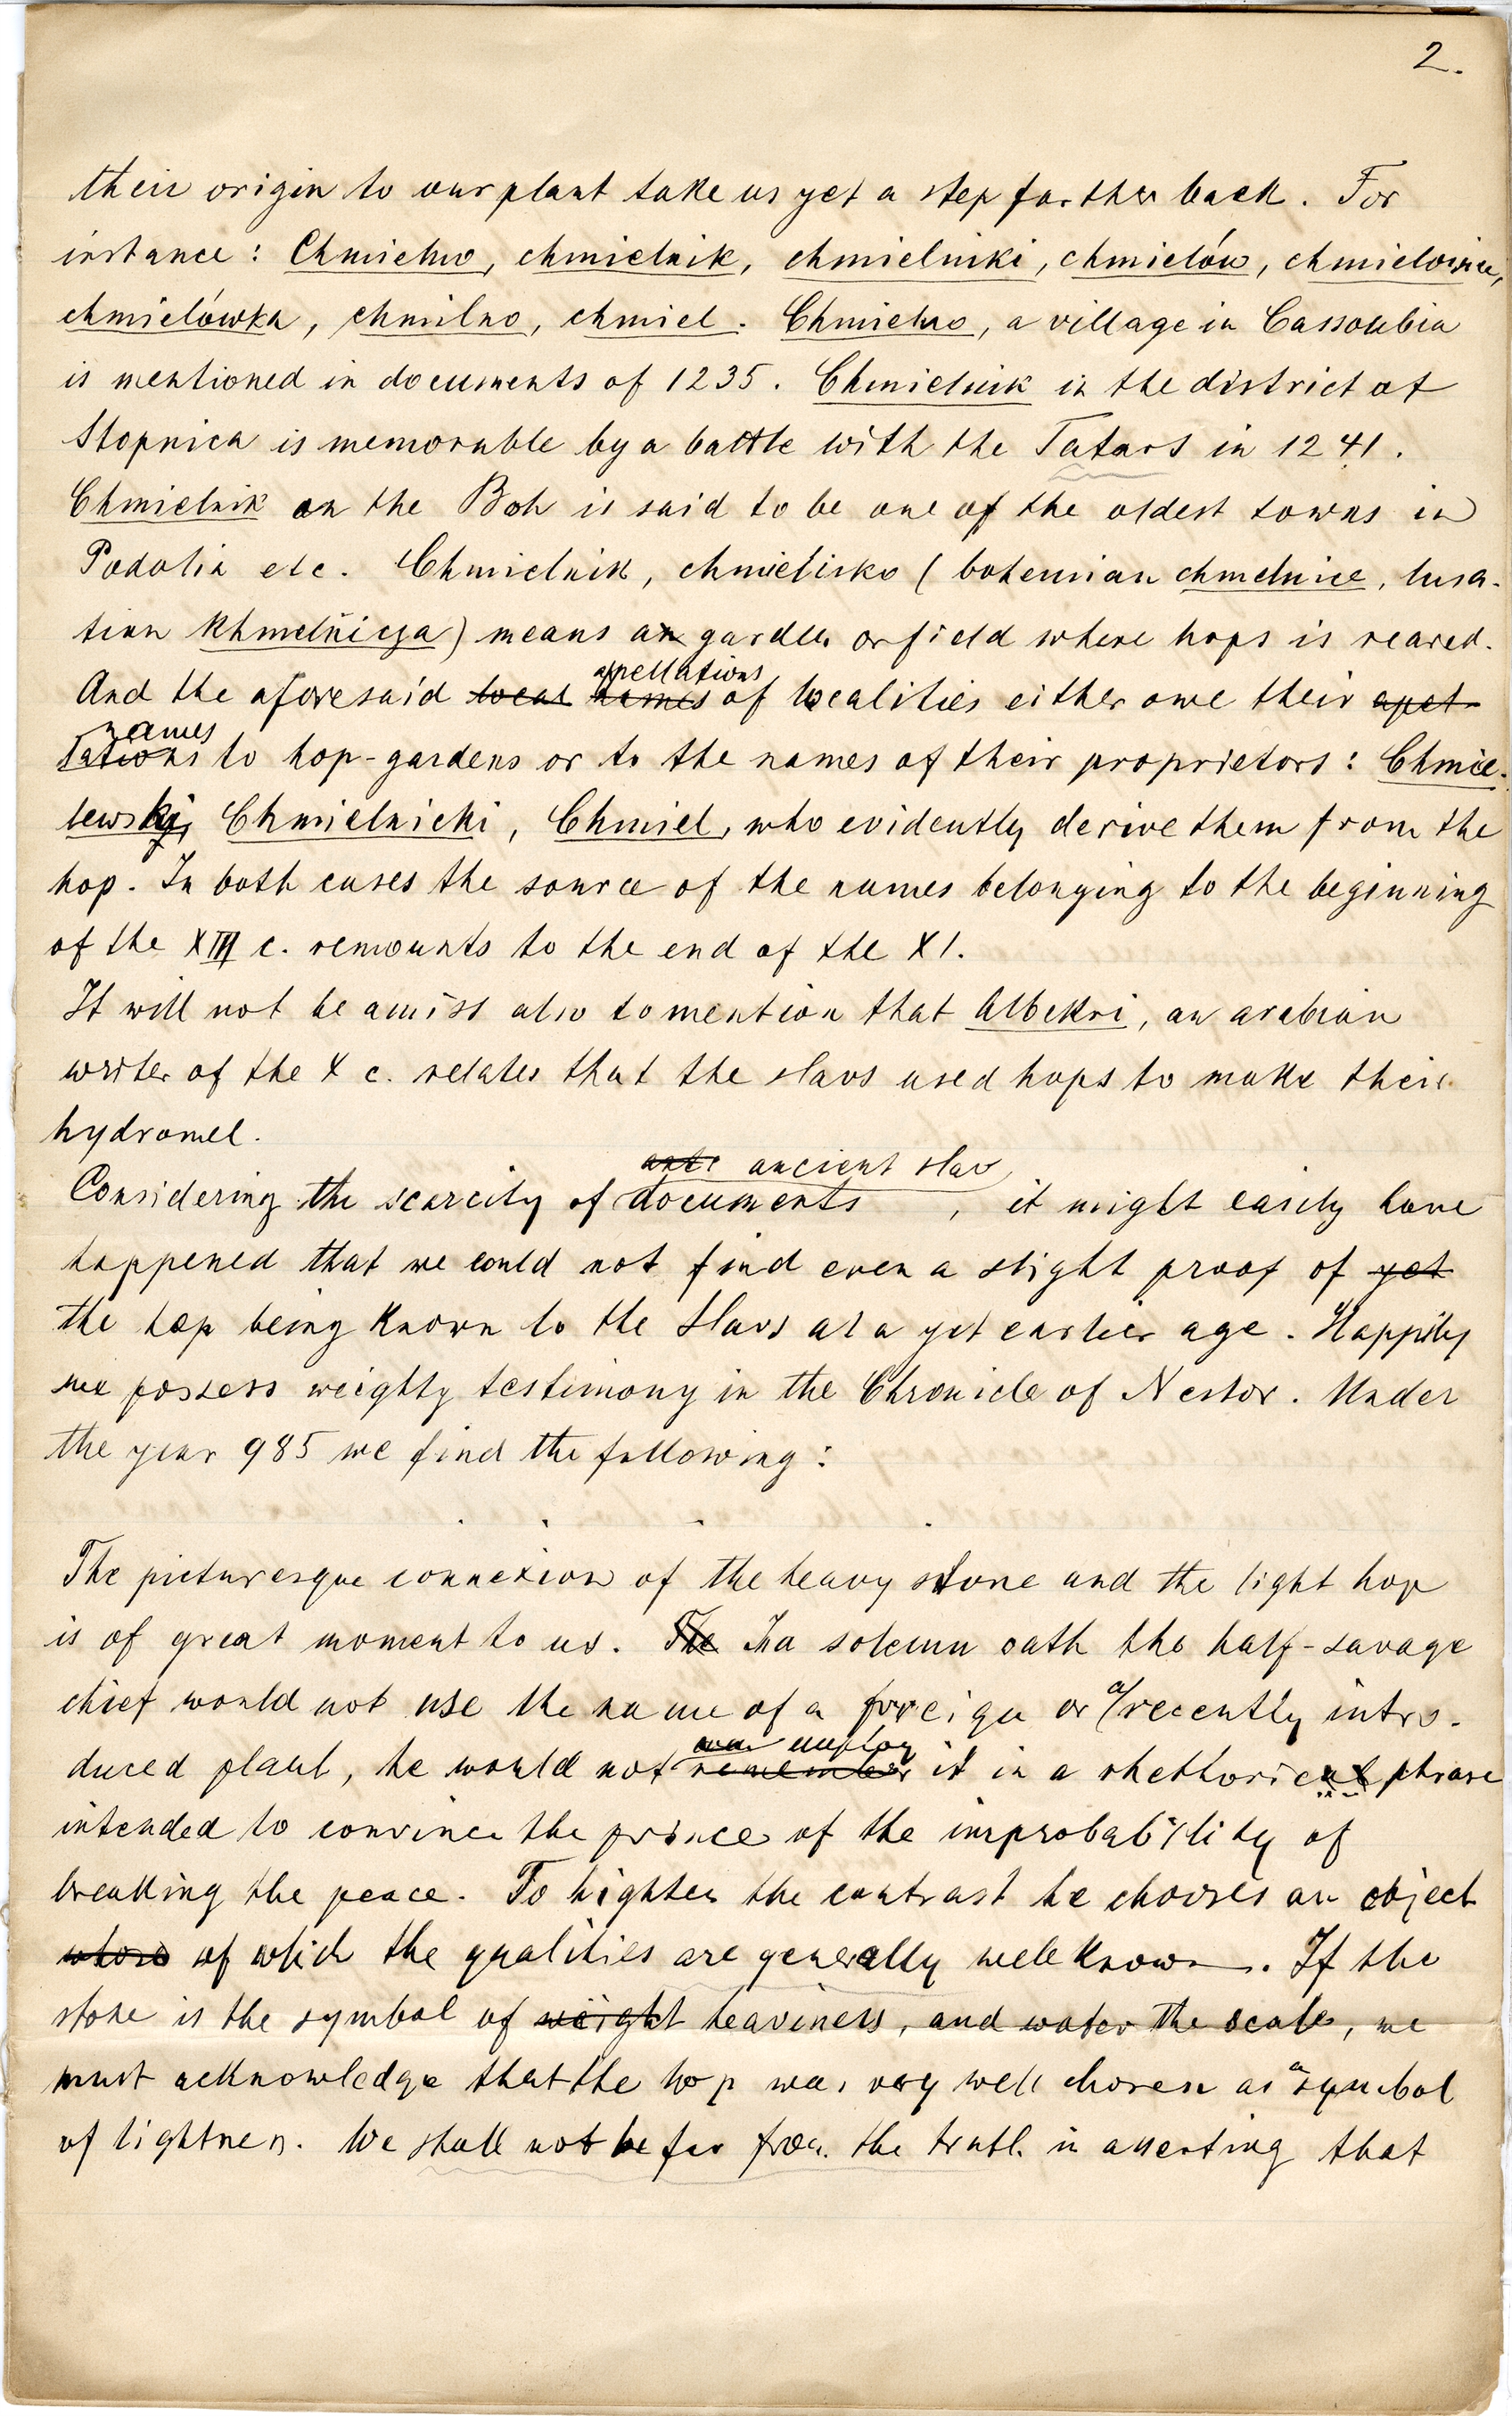 2.
their origin to our plant take us yet a step farther back. For
instance: Chmielno, chmielnik, chmielniki, chmielów, chmielowice,
chmielówka, chmilno, chmiel. Chmielno, a village in Cassoubia
is mentioned in documents of 1235. Chmielnik in the district of
Stopnica is memorable by a battle with the Tatars in 1241.
Chmielnik on the Boh is said to be one of the oldest towns in
Podolia etc. Chmielnik, chmielisko (bohemian chmelnice, lusa-
tian khmelńicza) means a garden or field where hops is reared.
appellations
And the aforesaid local names of localities either owe their apel-
names
lations to hop-gardens or to the names of their proprietors: Chmie-
lewski, Chmielnicki, Chmiel, who evidently derive them from the
hop. In both cases the source of the names belonging to the beginning
of the XIII c. remounts to the end of the XI.
It will not be amiss also to mention that Albekri, an arabian
writer of the X c. relates that the slavs used hops to make their
hydromel.
ancient slav
Considering the scarcity of documents, it might easily have
happened that we could not find even a slight proof of yet
the hop being known to the Slavs at a yet earlier age. Happily
we possess weighty testimony in the Chronicle of Nestor. Under
the year 985 we find the following:
The picturesque connexion of the heavy stone and the light hop
is of great moment to us. The In a solemn oath the half-savage
a
chief would not use the name of a foreign or recently intro-
employ
duced plant, he would not remember it in a rhethorical phrase
intended to convince the prince of the improbability of
breaking the peace. To highten the contrast he chooses an object
whose of which the qualities are generally well known. If the
stone is the symbol of weight heaviness, and water the scale, we
a
must acknowledge that the hop was very well chosen as symbol
of lightness. We shall not be far from the truth in asserting that